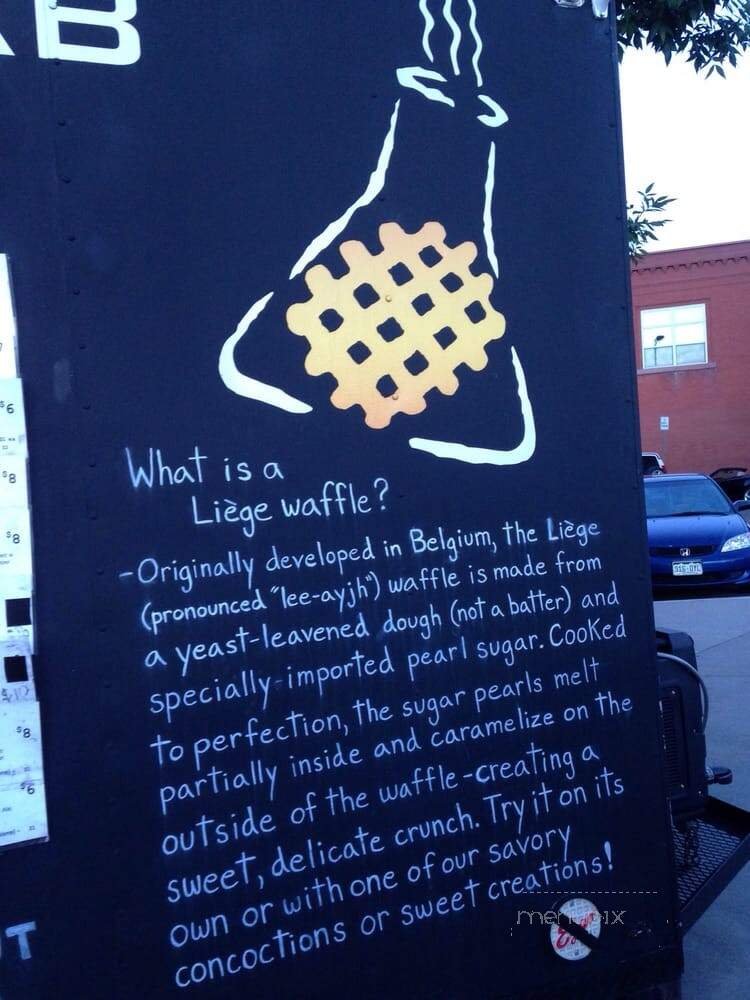 AB
What is a
Liège waffle?
-Originally developed in Belgium, the Liège
(pronounced "lee-ayjh") waffle is made from
a yeast-leavened dough (not a batter) and
specially-imported pearl sugar. Cooked
to perfection, the sugar pearls melt
partially inside and caramelize on the
outside of the waffle-creating a
sweet, delicate crunch. Try it on its
own or with one of our savory
concoctions or sweet creations!
$6
$8
$8
$8
$6
UT
menupix